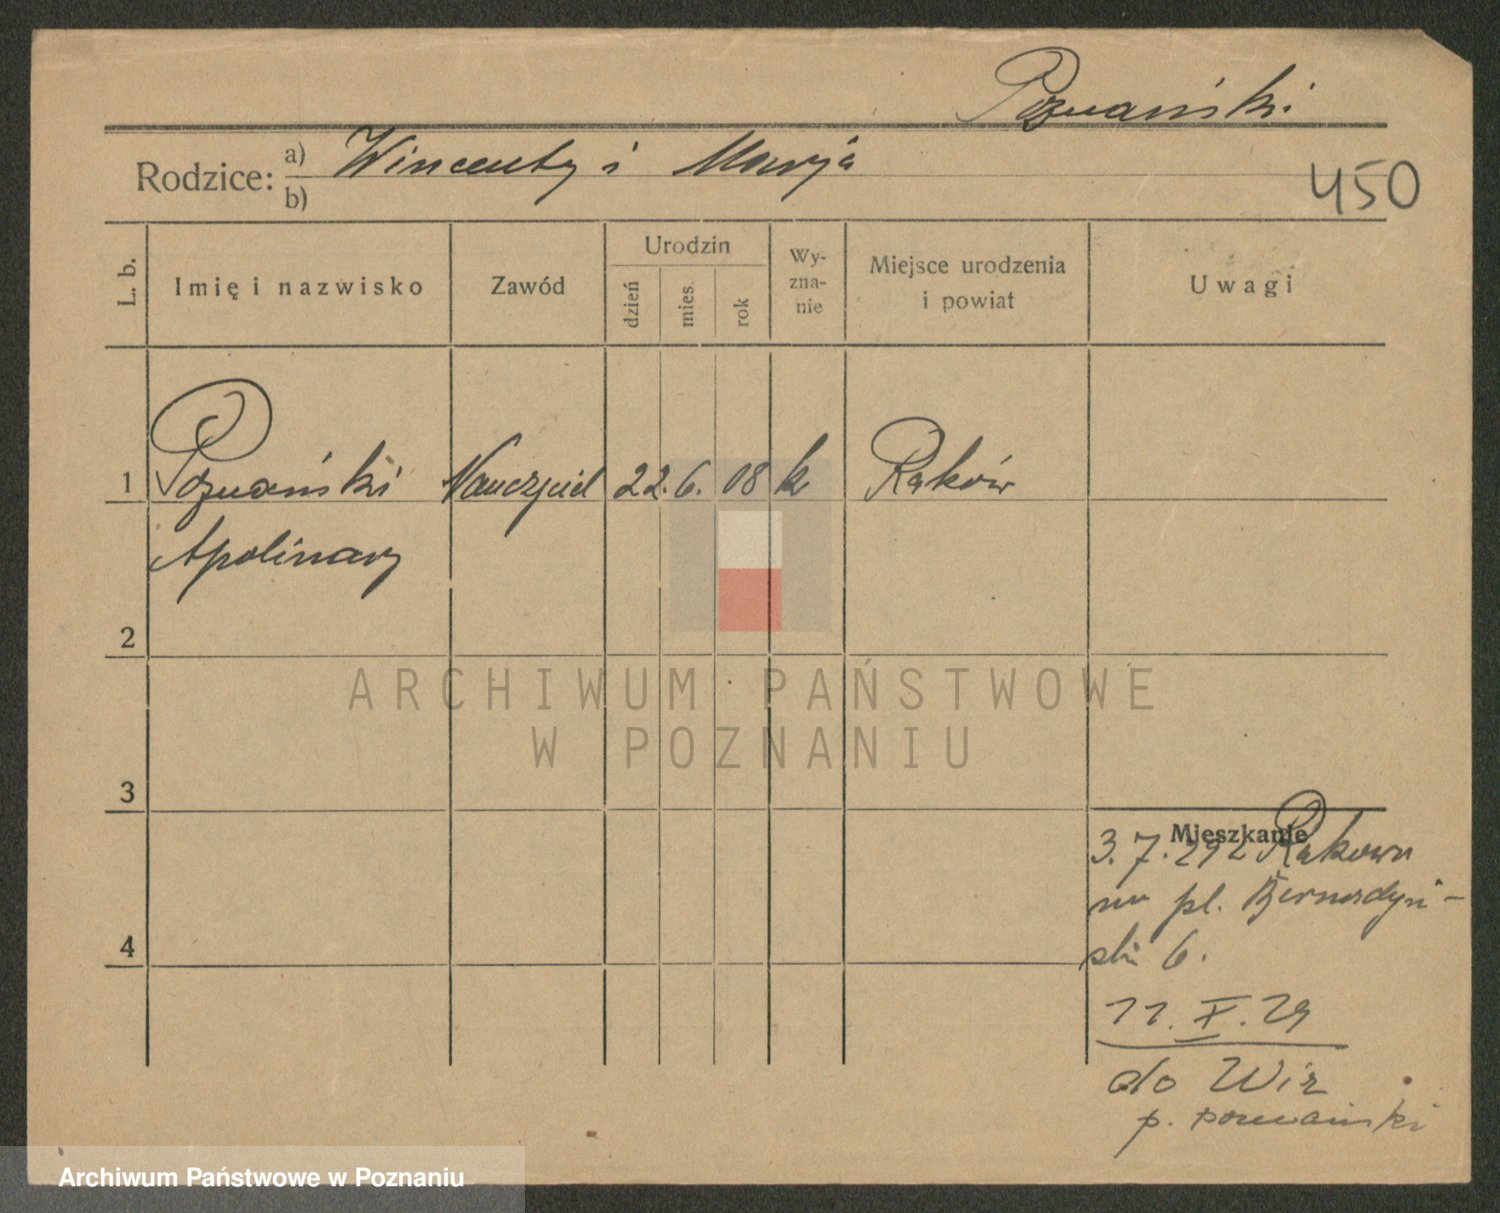 Poznański
Rodzice: a) Wincenty i Marja
b)
450
L. b.
Imię i nazwisko
Zawód
Urodzin
dzień
mies.
rok
Wy-
zna-
nie
Miejsce urodzenia
i powiat
Uwagi
1 Poznański Nauczyciel 22. 6. 08 k Raków
Apolinary
2
ARCHIWUM PAŃSTWOWE
W POZNANIU
3
Mieszkanie
3. 7. 29 z Rakowa
na pl. Bernardyń-
ski 6.
4
11. X. 29
do Wir
p. poznański
Archiwum Państwowe w Poznaniu